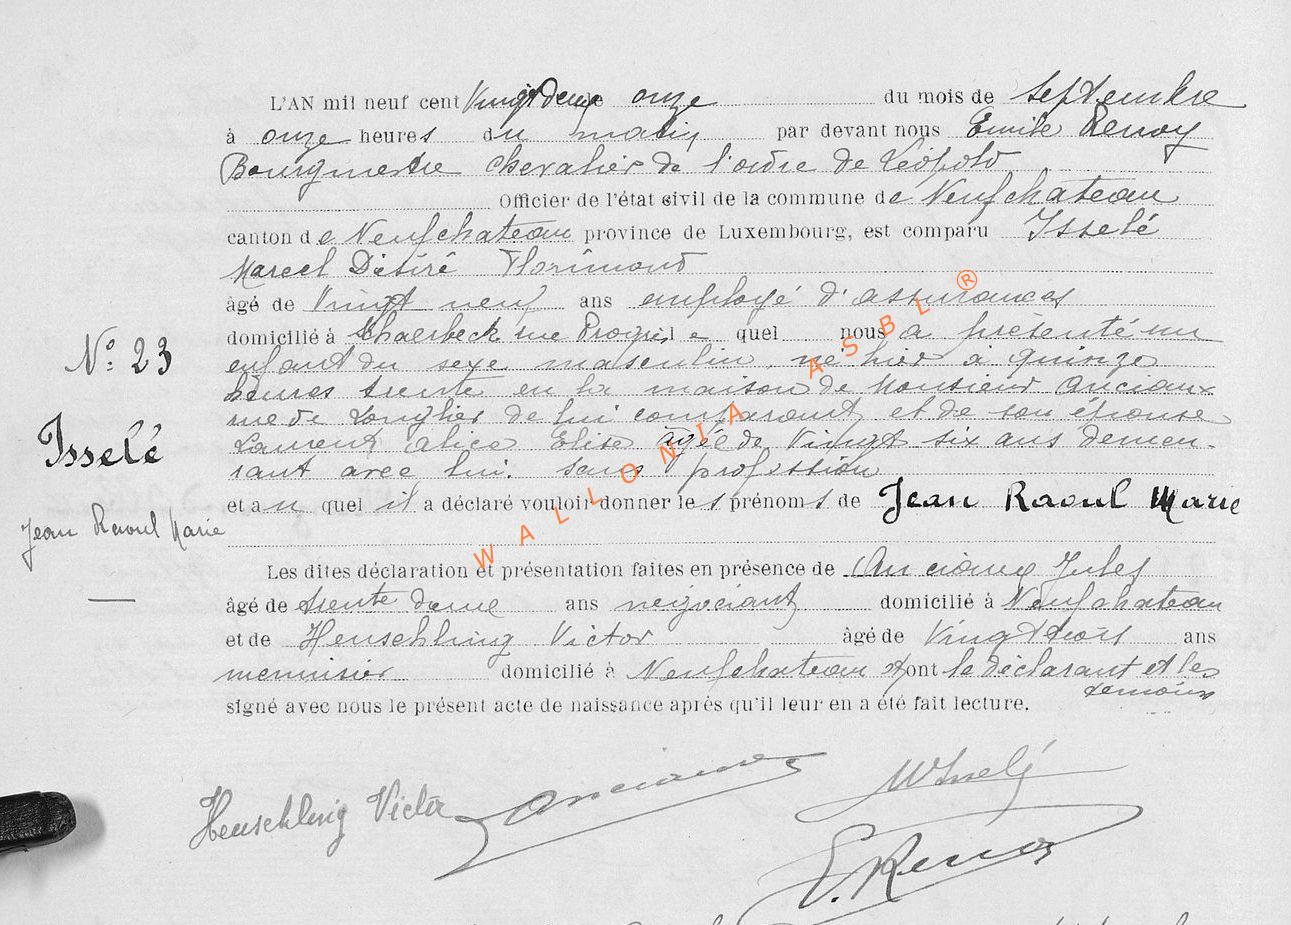 L'AN mil neuf cent Vingt deux le onze du mois de Septembre
à onze heures du matin par devant nous Emile Renoy
Bourgmestre Chevalier de l'ordre de Léopold
Officier de l'état civil de la commune de Neufchateau
canton de Neufchateau province de Luxembourg, est comparu Isselé
Marcel Désiré Florimond
âgé de Vingt neuf ans employé d'assurances
domicilié à Schaerbeck rue Progrès le quel nous a présenté un
enfant du sexe masculin, né hier a quinze
heures trente en la maison de Monsieur Anciaux
rue de Longlier de lui comparant et de son épouse
Laurent Alice Elise agée de Vingt six ans demeu-
rant avec lui. sans profession
et au quel il a déclaré vouloir donner les prénoms de Jean Raoul Marie
N° 23
Isselé
Jean Raoul Marie
Les dites déclaration et présentation faites en présence de Anciaux Jules
âgé de trente deux ans négociant domicilié à Neufchateau
et de Heuschling Victor âgé de Vingt trois ans
menuisier domicilié à Neufchateau et ont le déclarant et les
témoins
signé avec nous le présent acte de naissance après qu'il leur en a été fait lecture.
Heuschling Victor Anciaux M Isselé
E. Renoy
WALLONIA ASBL ®